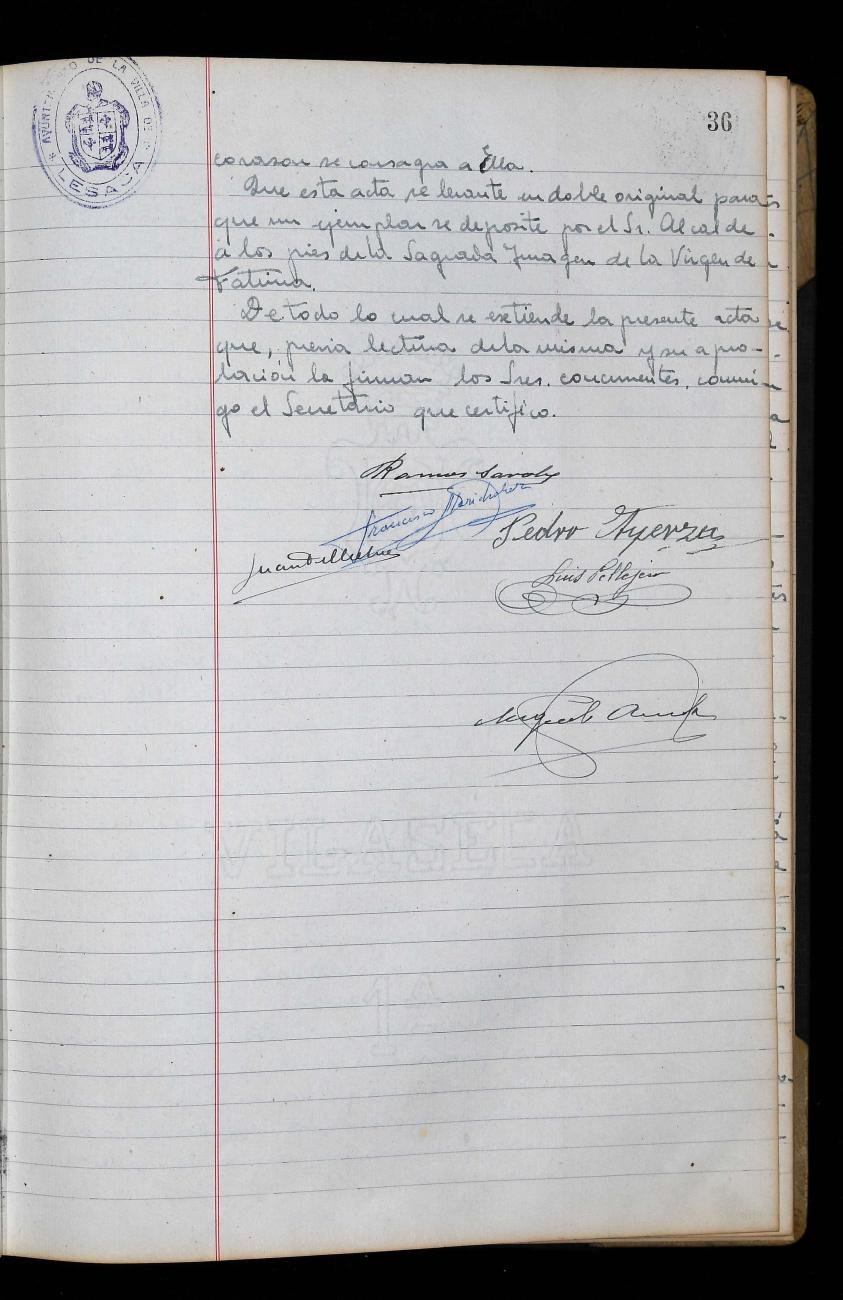 36
AYUNTAMIENTO DE LA VILLA DE
* LESACA *
corason se consagra a Ella.
Que esta acta se levante en doble original para
que un ejemplar se deposite por el Sr. Alcalde
á los pies de la Sagrada Imagen de la Virgen de
Fatima.
De todo lo cual se extiende la presente acta
que, previa lectura de la misma y su apro-
bación la firman los Sres. concurrentes, conmi-
go el Secretario que certifico.
Ramos
Francisco
Pedro Ayerza
Juan
Luis Pellejero
Miguel
VILASECA
1ª